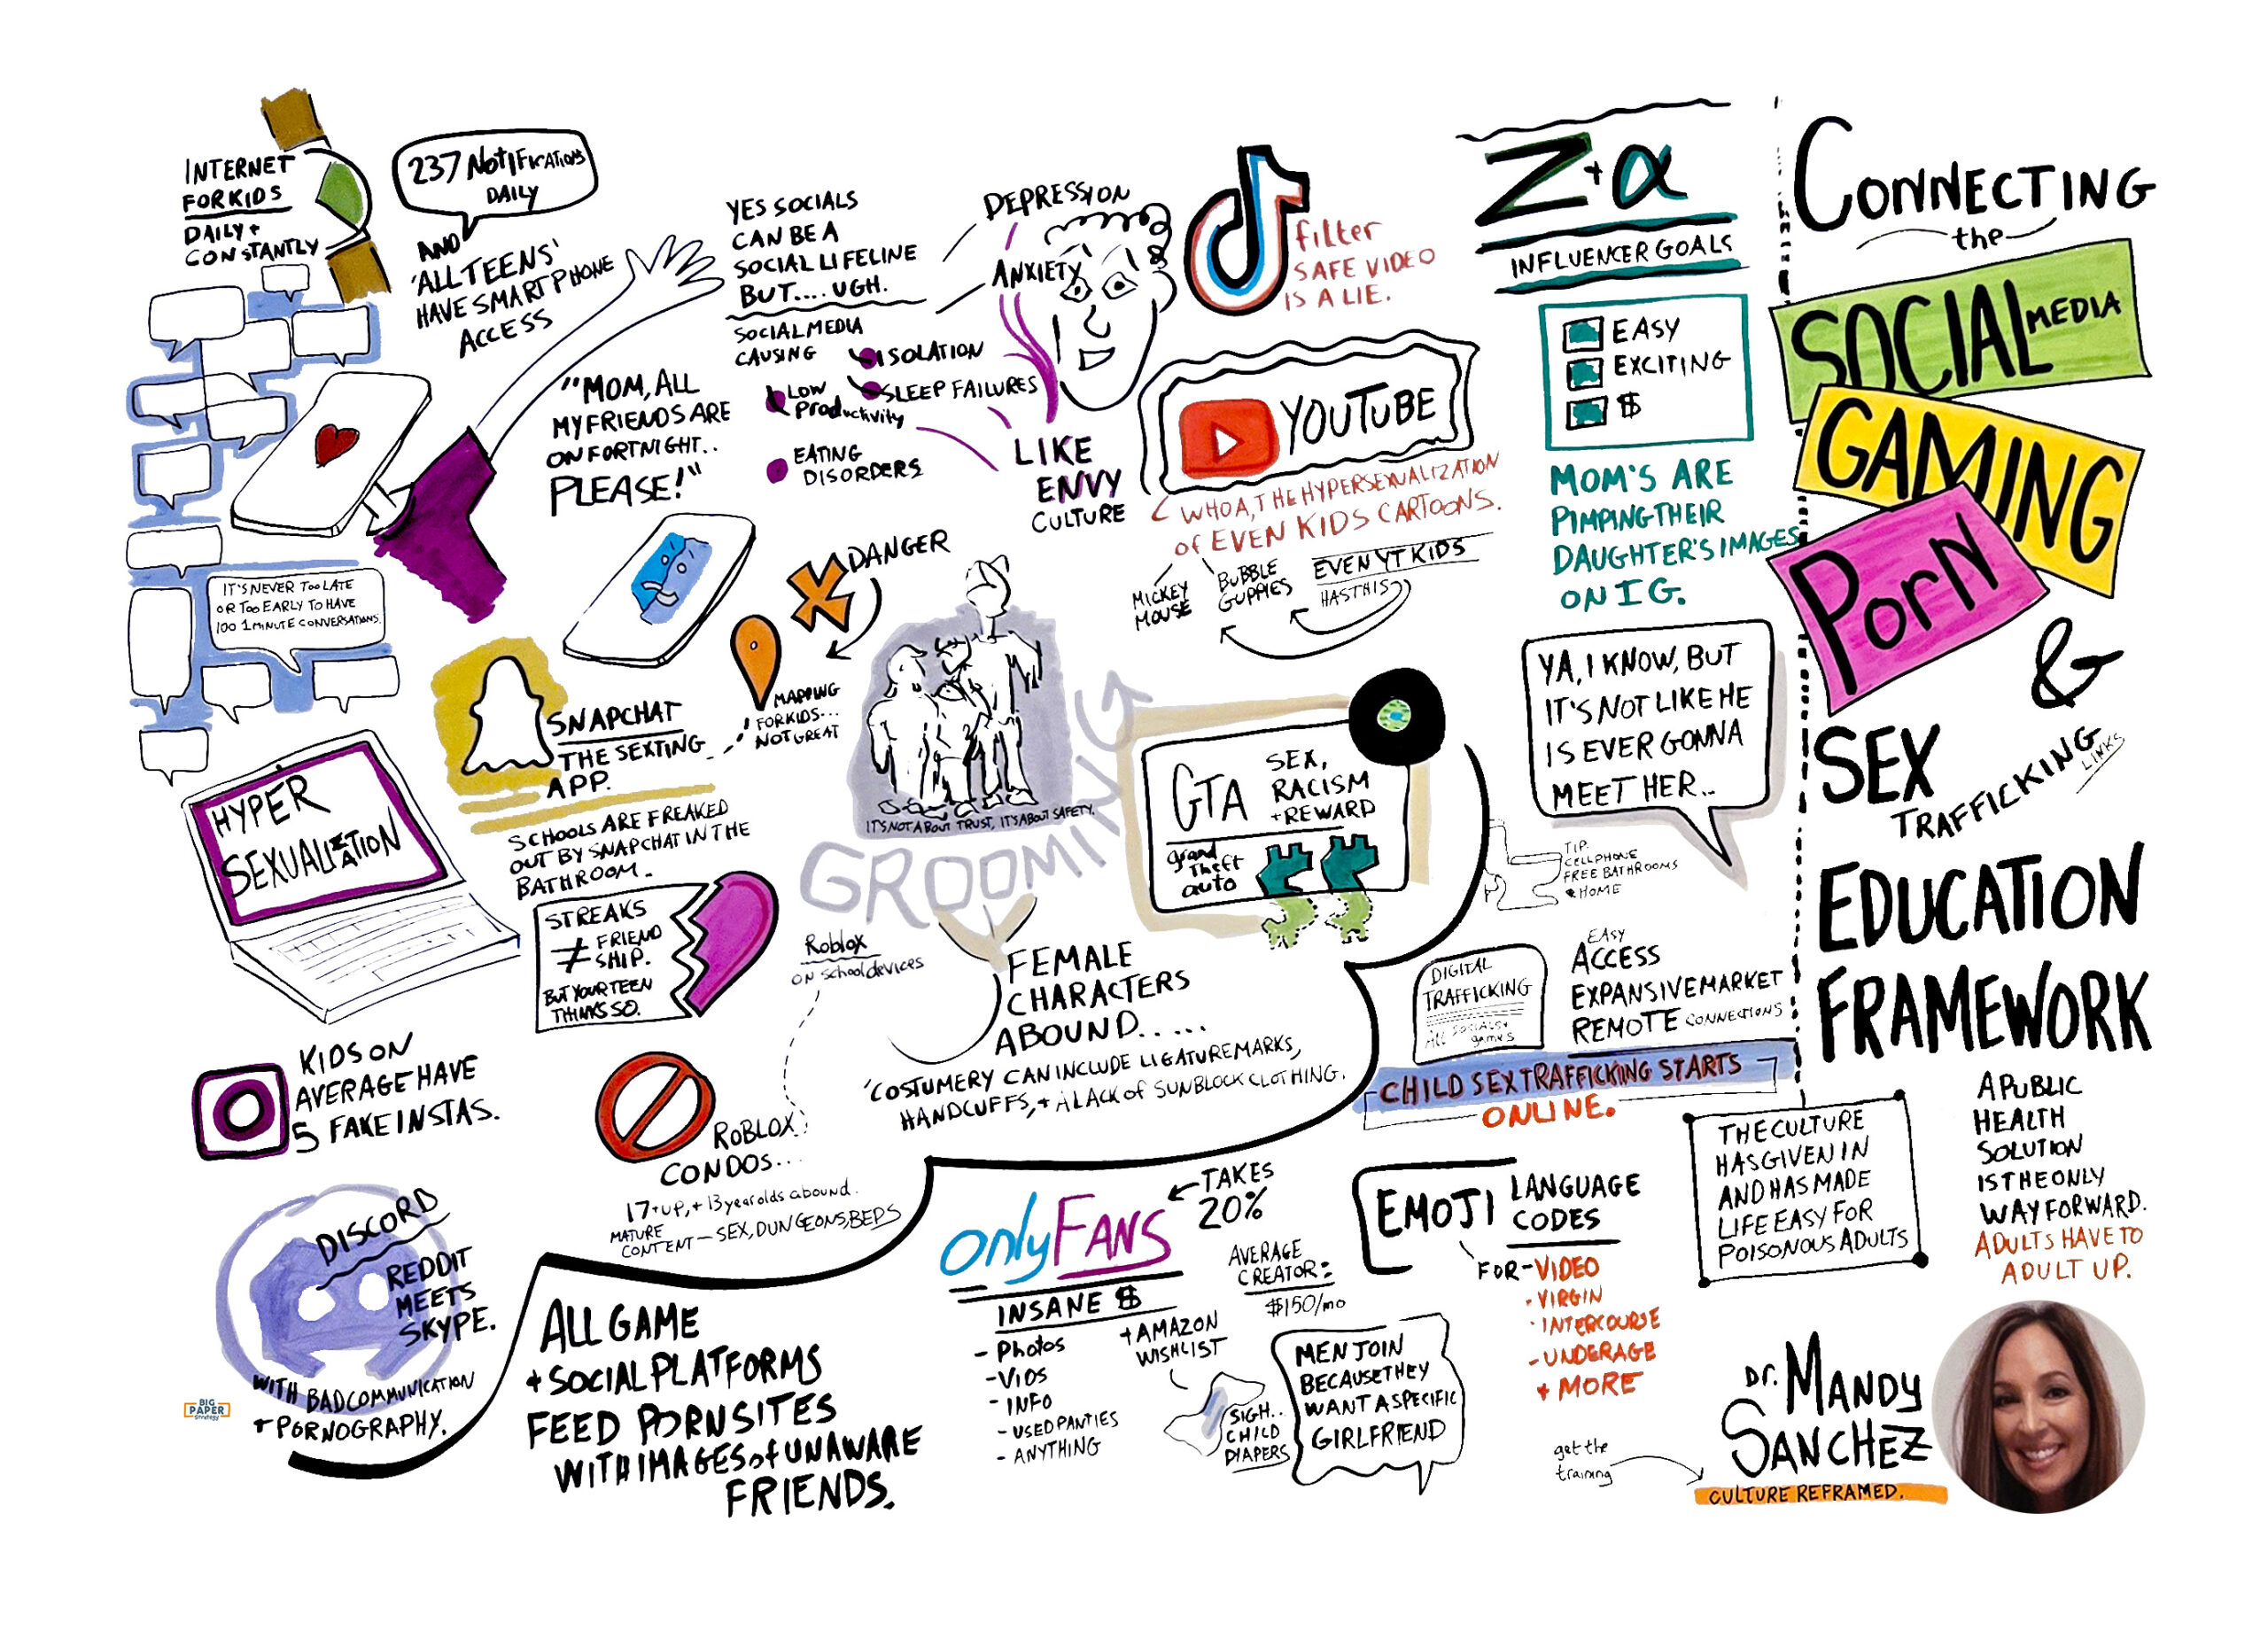 INTERNET
FOR KIDS
DAILY +
CONSTANTLY
237 NOTIFICATIONS
DAILY
AND
'ALL TEENS'
HAVE SMART PHONE
ACCESS
IT'S NEVER TOO LATE
OR TOO EARLY TO HAVE
100 1 MINUTE CONVERSATIONS.
"MOM, ALL
MY FRIENDS ARE
ON FORTNIGHT..
PLEASE!"
YES SOCIALS
CAN BE A
SOCIAL LIFELINE
BUT.... UGH.
SOCIAL MEDIA
CAUSING
ISOLATION
LOW
PRODUCTIVITY
SLEEP FAILURES
EATING
DISORDERS
DEPRESSION
ANXIETY
LIKE
ENVY
CULTURE
filter
SAFE VIDEO
IS A LIE.
YOUTUBE
WHOA, THE HYPERSEXUALIZATION
OF EVEN KIDS CARTOONS.
MICKEY
MOUSE
BUBBLE
GUPPIES
EVEN YT KIDS
HAS THIS
Z + α
INFLUENCER GOALS
EASY
EXCITING
$
MOM'S ARE
PIMPING THEIR
DAUGHTER'S IMAGES
ON IG.
YA, I KNOW, BUT
IT'S NOT LIKE HE
IS EVER GONNA
MEET HER..
CONNECTING
the
SOCIAL MEDIA
GAMING
PORN
&
SEX
TRAFFICKING
LINKS
EDUCATION
FRAMEWORK
A PUBLIC
HEALTH
SOLUTION
IS THE ONLY
WAY FORWARD.
ADULTS HAVE TO
ADULT UP.
DANGER
MAPPING
FOR KIDS...
NOT GREAT
SNAPCHAT
THE SEXTING
APP.
SCHOOLS ARE FREAKED
OUT BY SNAPCHAT IN THE
BATHROOM.
STREAKS
≠ FRIEND
SHIP.
BUT YOUR TEEN
THINKS SO.
HYPER
SEXUALIZATION
KIDS ON
AVERAGE HAVE
5 FAKE INSTAS.
DISCORD
REDDIT
MEETS
SKYPE.
WITH BAD COMMUNICATION
+ PORNOGRAPHY.
IT'S NOT ABOUT TRUST, IT'S ABOUT SAFETY.
GROOMING
GTA
grand
Theft
auto
SEX,
RACISM
+ REWARD
TIP:
CELLPHONE
FREE BATHROOMS
@ HOME
Roblox
ON School devices
ROBLOX
CONDOS...
17+ UP, + 13 year olds abound.
MATURE
CONTENT — SEX, DUNGEONS, BEDS
FEMALE
CHARACTERS
ABOUND.....
'COSTUMERY CAN INCLUDE LIGATURE MARKS,
HANDCUFFS, + A LACK of SUNBLOCK CLOTHING.
DIGITAL
TRAFFICKING
All SOCIALS +
games
EASY
ACCESS
EXPANSIVE MARKET
REMOTE CONNECTIONS
CHILD SEX TRAFFICKING STARTS
ONLINE.
THE CULTURE
HAS GIVEN IN
AND HAS MADE
LIFE EASY FOR
POISONOUS ADULTS
ALL GAME
+ SOCIAL PLATFORMS
FEED PORN SITES
WITH IMAGES of UNAWARE
FRIENDS.
onlyFANS
TAKES
20%
INSANE $
- Photos
- VIDS
- INFO
- USED PANTIES
- ANYTHING
+ AMAZON
WISHLIST
SIGH..
CHILD
DIAPERS
AVERAGE
CREATOR:
$150/mo
MEN JOIN
BECAUSE THEY
WANT A SPECIFIC
GIRLFRIEND
EMOJI LANGUAGE
CODES
FOR - VIDEO
- VIRGIN
- INTERCOURSE
- UNDERAGE
+ MORE
get the
training
Dr. MANDY
SANCHEZ
CULTURE REFRAMED.
BIG
PAPER
Strategy